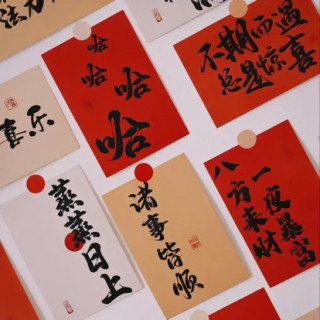 法力
哈哈哈哈
不期而遇
总是惊喜
喜乐
蒸蒸日上
诸事皆顺
一夜暴富
八方来财